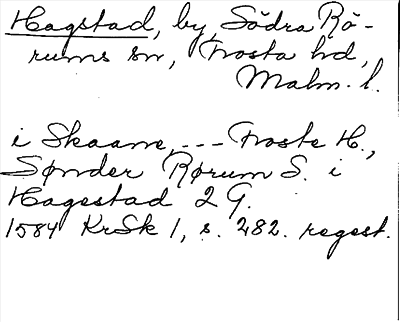 Hagstad, by, Södra Rö-
rums sn, Frosta hd,
Malm. l.
i Skaane, --- Froste H.,
Sønder Rørum S. i
Hagestad 2 G.
1584 KrSk 1, s. 282. regest.